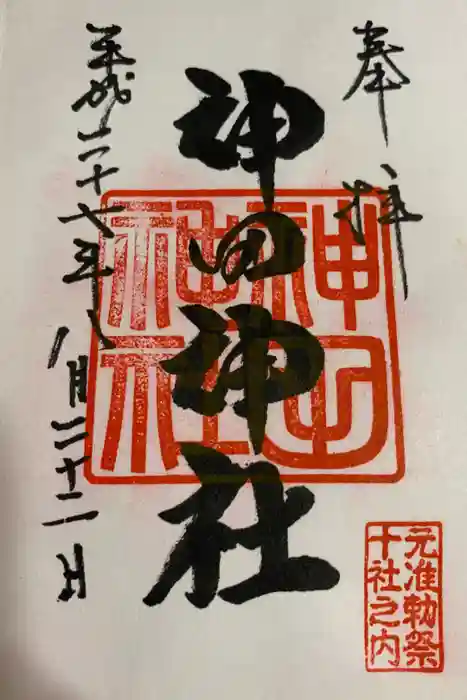 奉拝
神田神社
平成二十七年八月二十二日
神田
神社
元准勅祭
十社之内